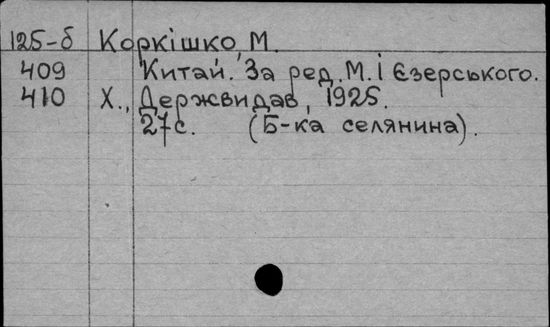 125-б Коркішко, М.
409 Китай. За ред. М. і Єзерського.
410 Х., Держвидав, 1925.
27с. (Б-ка селянина).